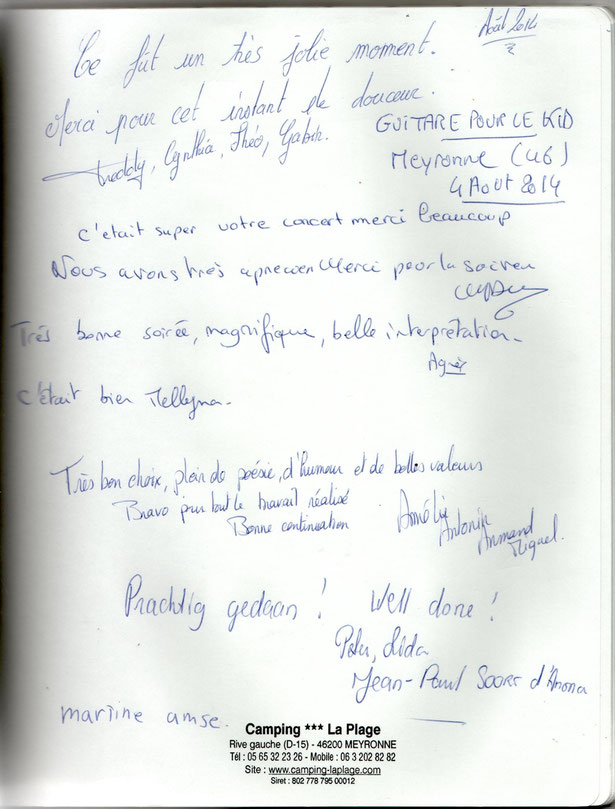 Août 2014
Ce fût un très jolie moment.
Merci pour cet instant de douceur.
Freddy, Cynthia, Théo, Gabin.
GUITARE POUR LE KID
Meyronne (46)
4 Août 2014
c'était super votre concert merci beaucoup
Nous avons très Merci pour la
Très bonne soirée, magnifique, belle interprétation.
Agnès
C'était bien
Très bon choix, plein de poésie, d'humour et de belles valeurs
Bravo pour tout le travail réalisé
Bonne continuation
Amélie
Antonin
Armand
Miguel.
Prachtig gedaan! Well done!
Jean-Paul
martine amse.
Camping *** La Plage
Rive gauche (D-15) - 46200 MEYRONNE
Tél : 05 65 32 23 26 - Mobile : 06 3 202 82 82
Site : www.camping-laplage.com
Siret : 802 778 795 00012